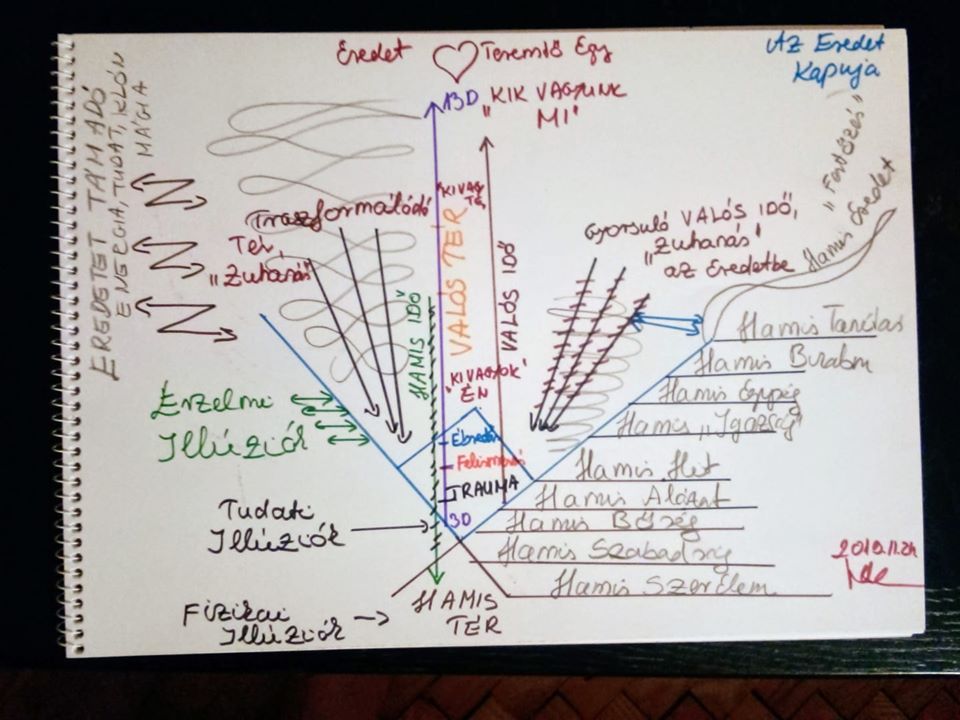 Eredet
Teremtő Egy
Az Eredet
Kapuja
EREDETET TÁMADÓ
ENERGIA, TUDAT, KLÓN
MÁGIA
13D
"KIK VAGYUNK
MI"
"Fertőzés"
Hamis Eredet
Traszformálódó
Tér,
"Zuhanás"
"KI VAGY
TE"
VALÓS TÉR
VALÓS IDŐ
HAMIS IDŐ
Gyorsuló VALÓS IDŐ,
"Zuhanás"
az Eredetbe
"KI VAGYOK"
ÉN
Érzelmi
Illúziók
Ébredés
Felismerés
TRAUMA
3D
Tudati
Illúziók
Fizikai
Illúziók
HAMIS
TÉR
Hamis Tanítás
Hamis Biralom
Hamis Egység
Hamis "Igazság"
Hamis Hit
Hamis Alázat
Hamis Bőség
Hamis Szabadság
Hamis Szerelem